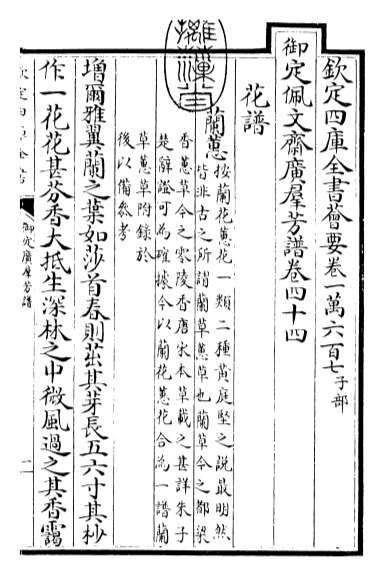 欽定四庫全書薈要卷一萬六百七子部
御定佩文齋廣羣芳譜卷四十四
花譜
蘭蕙按蘭花蕙花一類二種黄庭堅之說最明然
皆非古之所謂蘭草蕙草也蘭草今之都梁
香蕙草今之零陵香唐宋本草載之甚詳朱子
楚辭證可為確據今以蘭花蕙花合為一譜蘭
草蕙草附錄於
後以備參考
增爾雅翼蘭之葉如莎首春則茁其芽長五六寸其杪
作一花花甚芬香大抵生深林之中微風過之其香靄
欽定四庫全書
御定廣羣芳譜
一